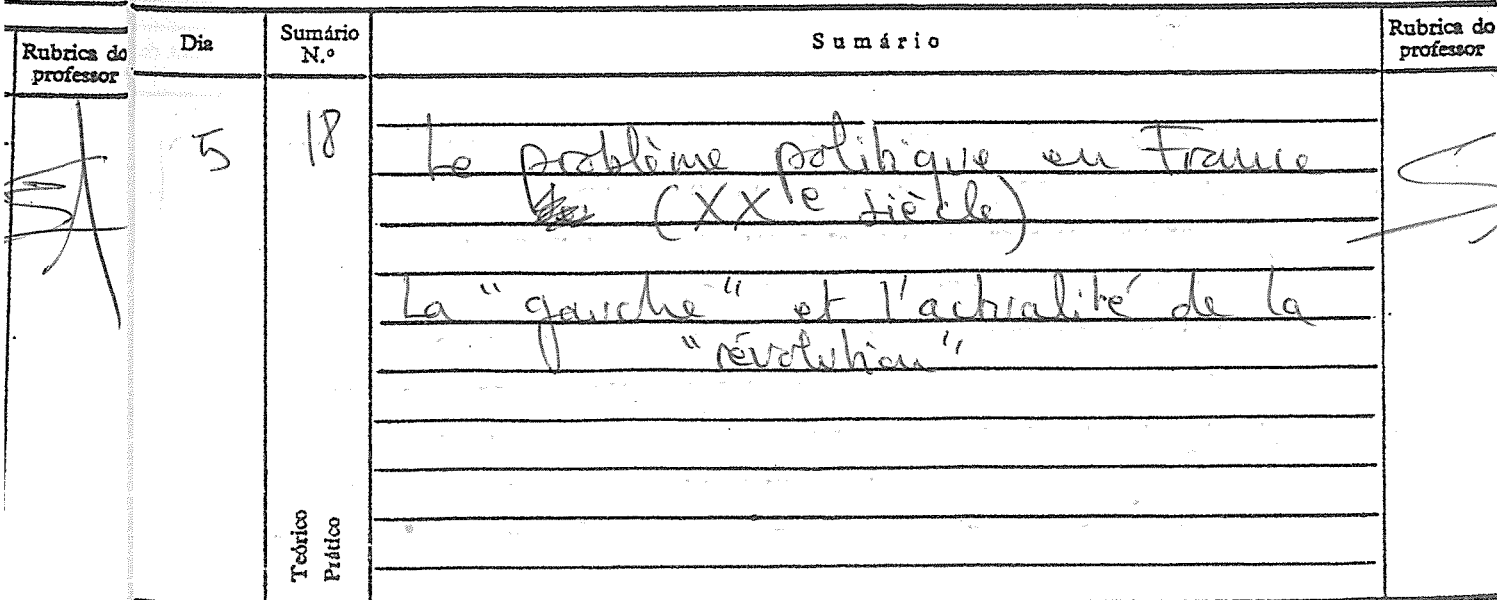 Rubrica do
professor
Dia
Sumário
N.º
Sumário
Rubrica do
professor
5
18
Le problème politique en France
(XXe siècle)
La "gauche" et l'actualité de la
"révolution"
Teórico
Prático